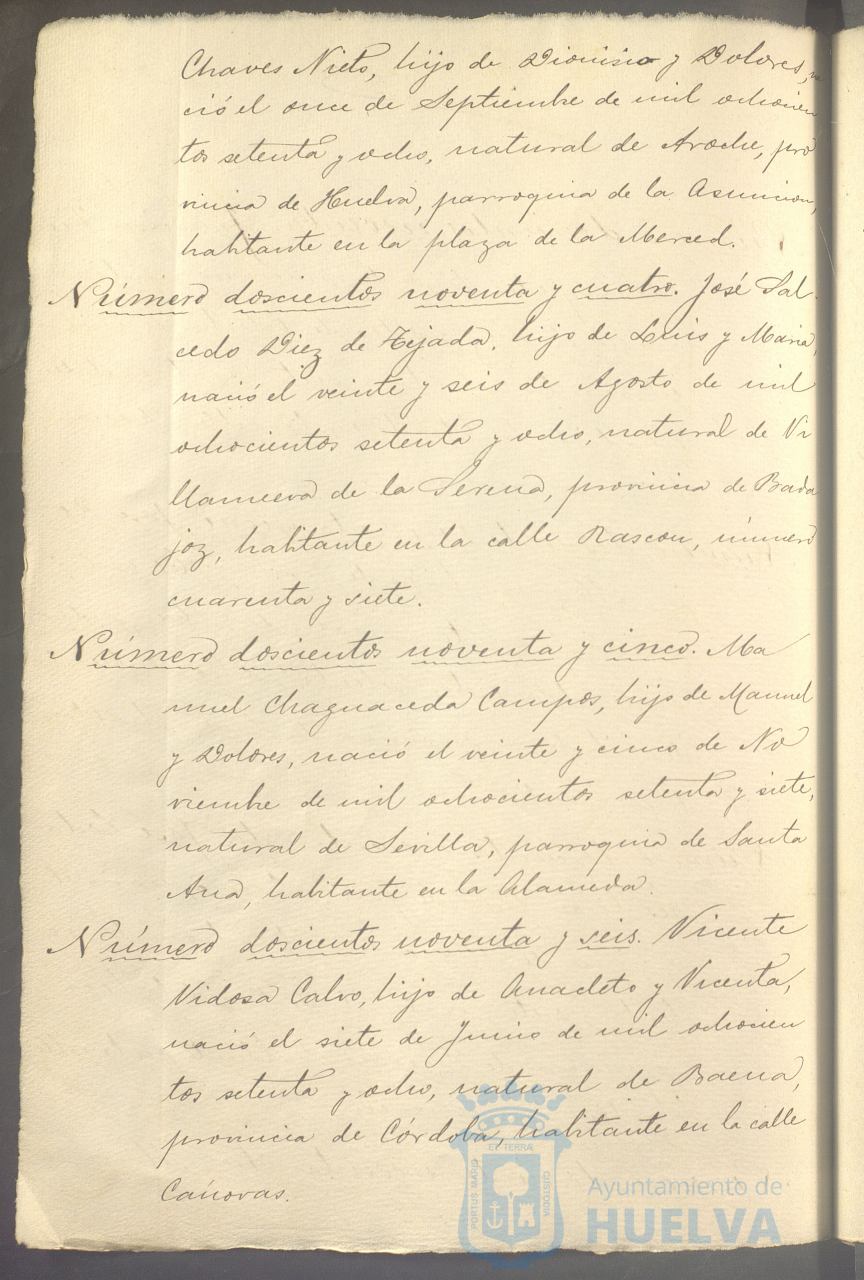 Chaves Nieto, hijo de Dionisio y Dolores, na
ció el once de Septiembre de mil ochocien
tos setenta y ocho, natural de Aroche, pro
vincia de Huelva, parroquia de la Asuncion,
habitante en la plaza de la Merced.
Número doscientos noventa y cuatro. José Sal-
cedo Diez de Tejada, hijo de Luis y Maria,
nació el veinte y seis de Agosto de mil
ochocientos setenta y ocho, natural de Vi
llanueva de la Serena, provincia de Bada
joz, habitante en la calle Rascon, número
cuarenta y siete.
Número doscientos noventa y cinco. Ma
nuel Chaguaceda Campos, hijo de Manuel
y Dolores, nació el veinte y cinco de No
viembre de mil ochocientos setenta y siete,
natural de Sevilla, parroquia de Santa
Ana, habitante en la Alameda.
Número doscientos noventa y seis. Vicente
Vidosa Calvo, hijo de Anacleto y Vicenta,
nació el siete de Junio de mil ochocien
tos setenta y ocho, natural de Baena,
provincia de Córdoba, habitante en la calle
Cánovas.
PORTUS MARIS
ET TERRA
CUSTODIA
Ayuntamiento de
HUELVA